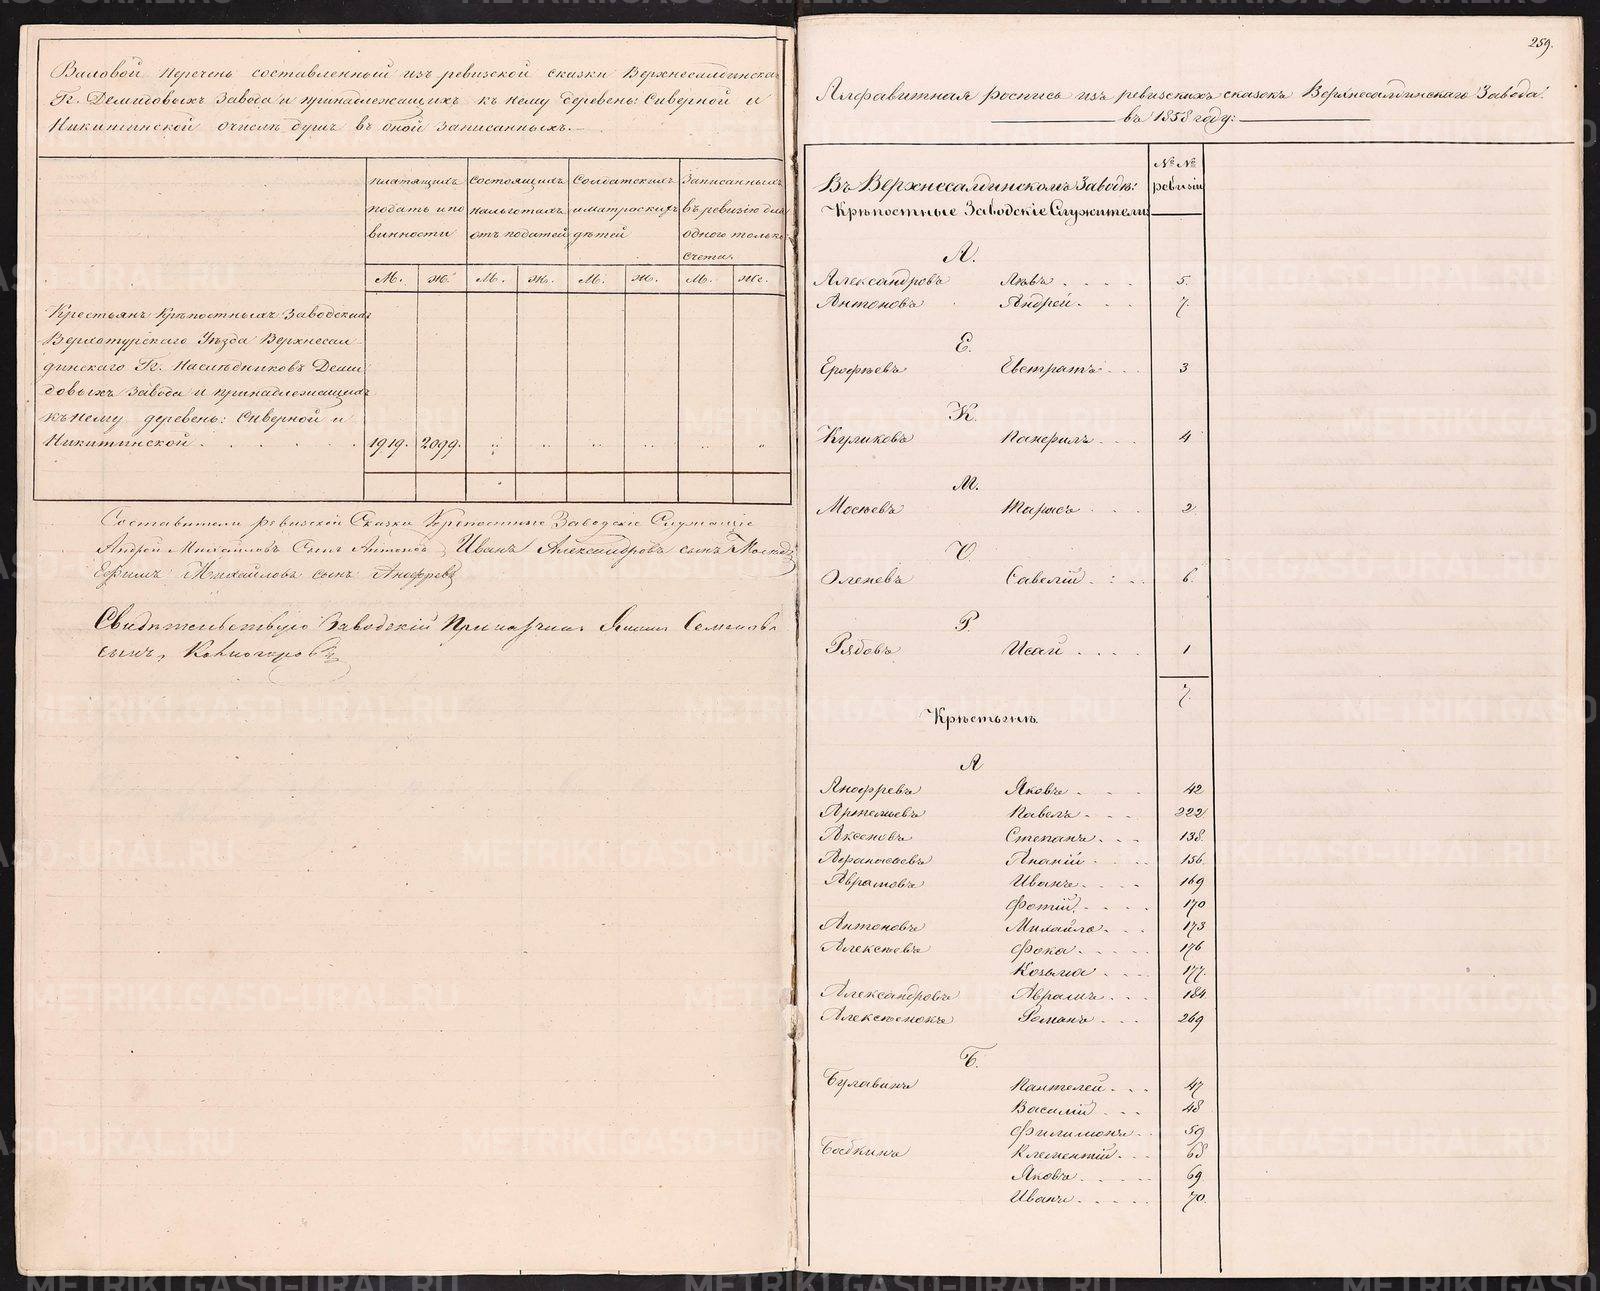 Валовой перечень составленный изъ ревизской сказки Верхнесалдинскаго
Гг. Демидовыхъ Завода и принадлежащихъ къ нему деревень: Сѣверной и
Никитинской о числѣ душъ въ оной записанныхъ.
платящихъ подать и повинности
состоящихъ на льготахъ отъ податей
Солдатскихъ и матроскихъ дѣтей
Записанныхъ въ ревизію для одного только счета.
М. Ж. М. Ж. М. Ж. М. Ж.
Крестьянъ Крѣпостныхъ Заводскихъ
Верхотурскаго Уѣзда Верхнесал-
динскаго Гг. Наслѣдниковъ Деми
довыхъ Завода и принадлежащихъ
къ нему деревень: Сѣверной и
Никитинской . . . . . 1919. 2099.
Составители ревизской Сказки Крепостные Заводскіе Служащіе
Андрей Михайловъ Сынъ Антоновъ, Иванъ Александровъ сынъ
Ефимъ Михайловъ сынъ Анофревъ
Свидѣтельствую Заводскій Прикащикъ Семеновъ
сынъ,
259.
Алфавитная роспись изъ ревизскихъ сказокъ Верхнесалдинскаго Завода
въ 1858 году:
№ № ревизіи
Въ Верхнесалдинскомъ Заводѣ:
Крѣпостные Заводскіе Служители:
А.
Александровъ Левъ . . . . 5.
Антоновъ Андрей . . . 7.
Е.
Ерофѣевъ Евстратъ . . . 3
К.
Куликовъ Панфилъ . . . 4
М.
Мосѣевъ Тарасъ . . . 2
О.
Оленевъ Савелій . : . . 6.
Р.
Рябовъ Исай . . . . 1
7.
Крѣстьянѣ
А
Анофревъ Яковъ . . . . 42
Артемьевъ Павелъ . . . . 222
Аксеновъ Степанъ . . . 138.
Афанасьевъ Ананій . . . . 156
Аврамовъ Иванъ . . . . 169
Фотій . . . . 170
Антоновъ Михайло . . . 173
Алексѣевъ Фока . . . . . 176
Козьма . . . . 177.
Александровъ Аврамъ . . . 184.
Алексѣенокъ Романъ . . . 269
Б.
Булавинъ Пантелей . . . 47
Василій . . . 48
Филимонъ . . 59.
Бабкинъ Клементій . . . 68
Яковъ . . . . . 69
Иванъ . . . . . 70.
METRIKI.GASO-URAL.RU